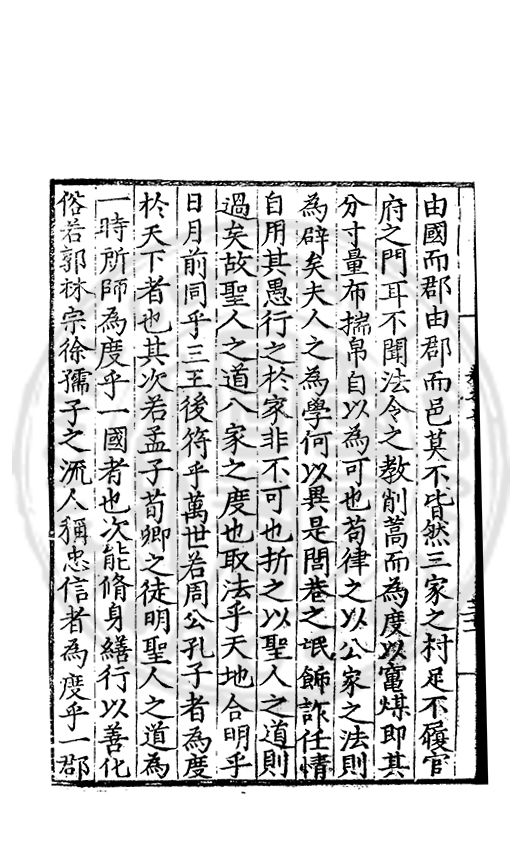 由國而郡由郡而邑莫不皆然三家之村足不履官
府之門耳不聞法令之教削蒿而為度以竈煤即其
分寸量布揣帛自以為可也苟律之以公家之法則
為辟矣夫人之為學何以異是閭巷之氓飾詐任情
自用其愚行之於家非不可也折之以聖人之道則
過矣故聖人之道八家之度也取法乎天地合明乎
日月前同乎三王後符乎萬世若周公孔子者為度
於天下者也其次若孟子荀卿之徒明聖人之道為
一時所師為度乎一國者也次能脩身繕行以善化
俗若郭林宗徐孺子之流人稱忠信者為度乎一郡